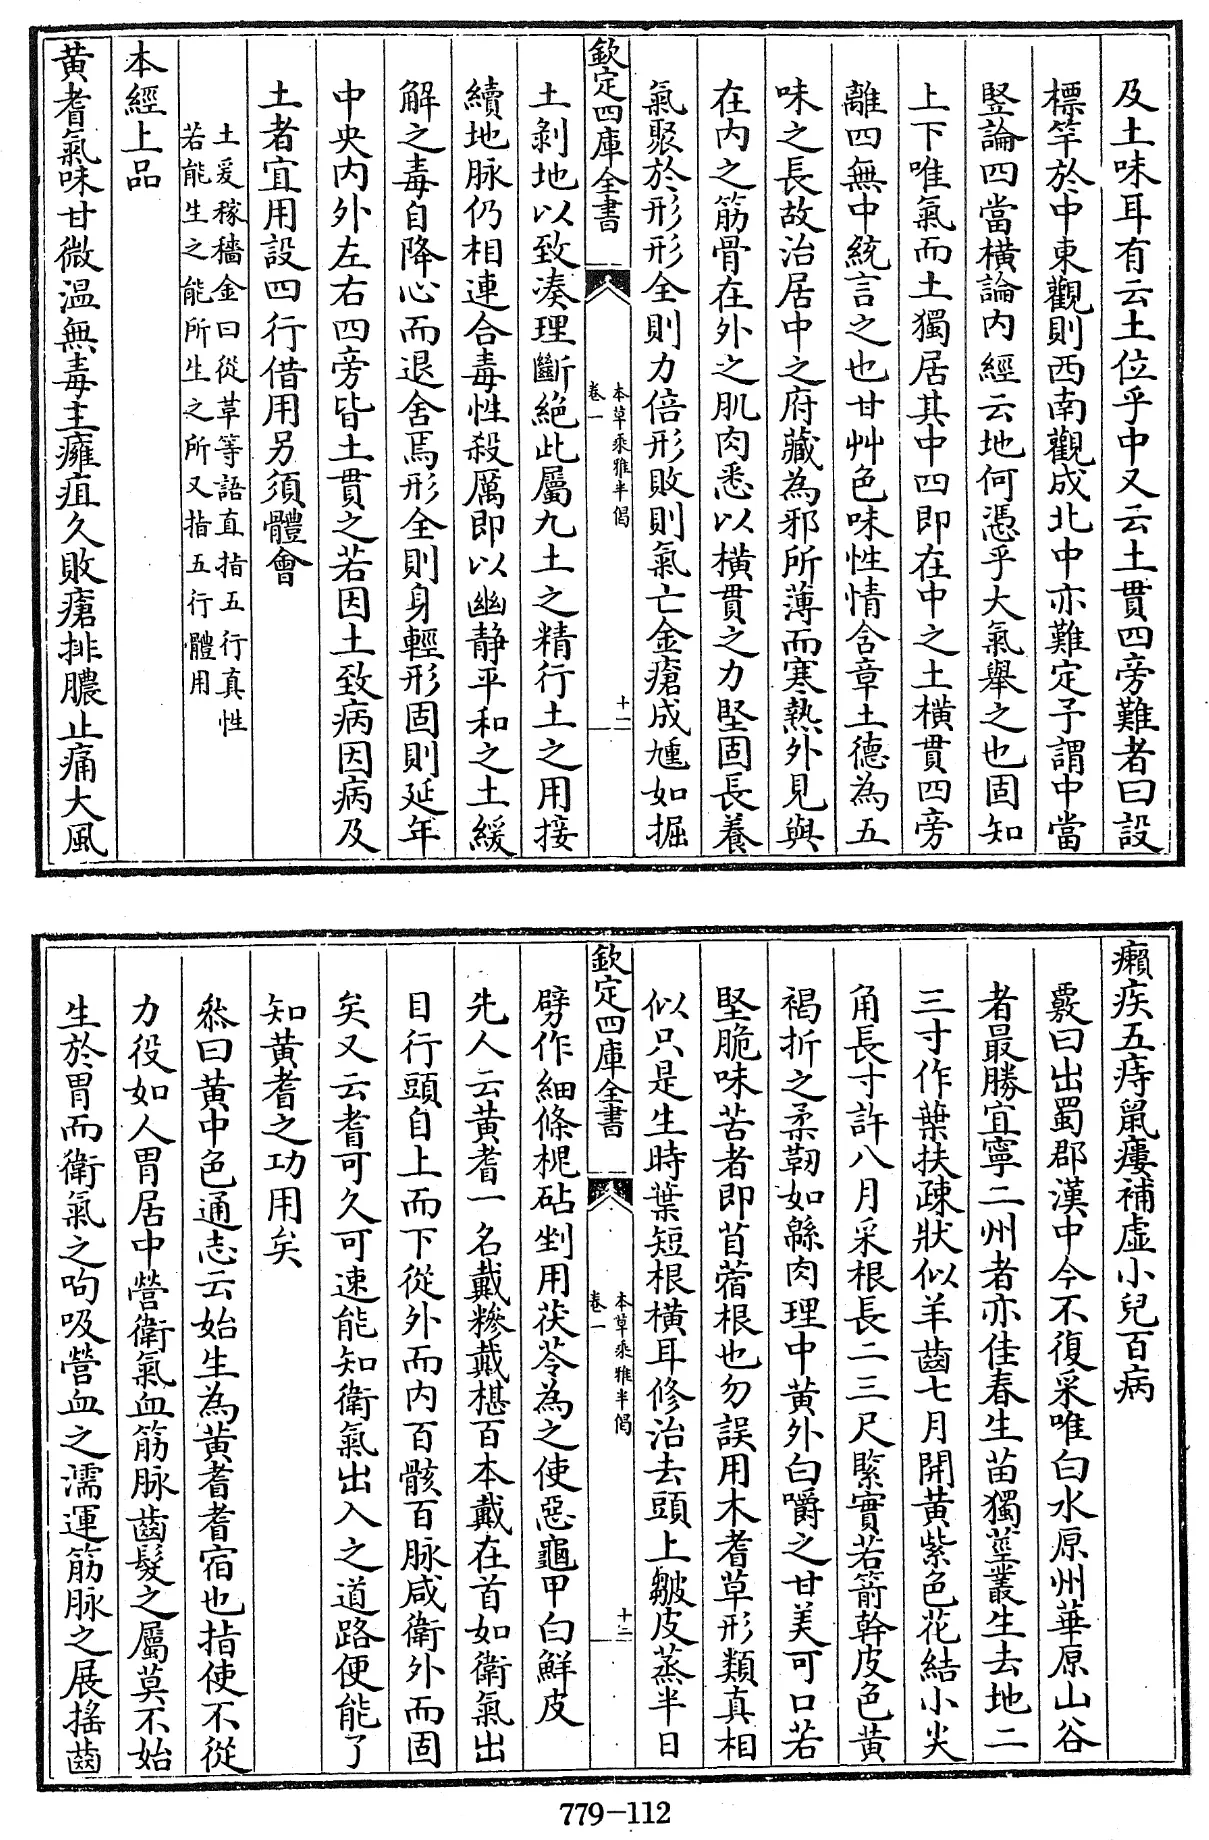 及土味耳有云土位乎中又云土貫四旁難者曰設
標竿於中東觀則西南觀成北中亦難定予謂中當
竪論四當橫論內經云地何憑乎大氣舉之也固知
上下唯氣而土獨居其中四即在中之土橫貫四旁
離四無中統言之也甘艸色味性情含章土德為五
味之長故治居中之府藏為邪所薄而寒熱外見與
在內之筋骨在外之肌肉悉以橫貫之力堅固長養
氣聚於形形全則力倍形敗則氣亡金瘡成尰如掘
欽定四庫全書
本草乘雅半偈
卷一
十一
土剝地以致湊理斷絕此屬九土之精行土之用接
續地脉仍相連合毒性殺厲即以幽静平和之土緩
解之毒自降心而退舍焉形全則身輕形固則延年
中央內外左右四旁皆土貫之若因土致病因病及
土者宜用設四行借用另須體會
土爰稼穡金曰從革等語直指五行真性
若能生之能所生之所又指五行體用
本經上品
黄耆氣味甘微温無毒主癰疽久敗瘡排膿止痛大風
癩疾五痔鼠瘻補虛小兒百病
覈曰出蜀郡漢中今不復采唯白水原州華原山谷
者最勝宜寧二州者亦佳春生苗獨莖叢生去地二
三寸作葉扶疎狀似羊齒七月開黄紫色花結小尖
角長寸許八月采根長二三尺緊實若箭幹皮色黄
褐折之柔韌如緜肉理中黄外白嚼之甘美可口若
堅脆味苦者即苜蓿根也勿誤用木耆草形類真相
似只是生時葉短根橫耳修治去頭上皺皮蒸半日
欽定四庫全書
本草乘雅半偈
卷一
十二
劈作細條槐砧剉用茯苓為之使惡龜甲白鮮皮
先人云黄耆一名戴糝戴椹百本戴在首如衛氣出
目行頭自上而下從外而內百骸百脉咸衛外而固
矣又云耆可久可速能知衛氣出入之道路便能了
知黄耆之功用矣
叅曰黄中色通志云始生為黄耆耆宿也指使不從
力役如人胃居中營衛氣血筋脉齒髮之屬莫不始
生於胃而衛氣之呴吸營血之濡運筋脉之展搖齒
779-112